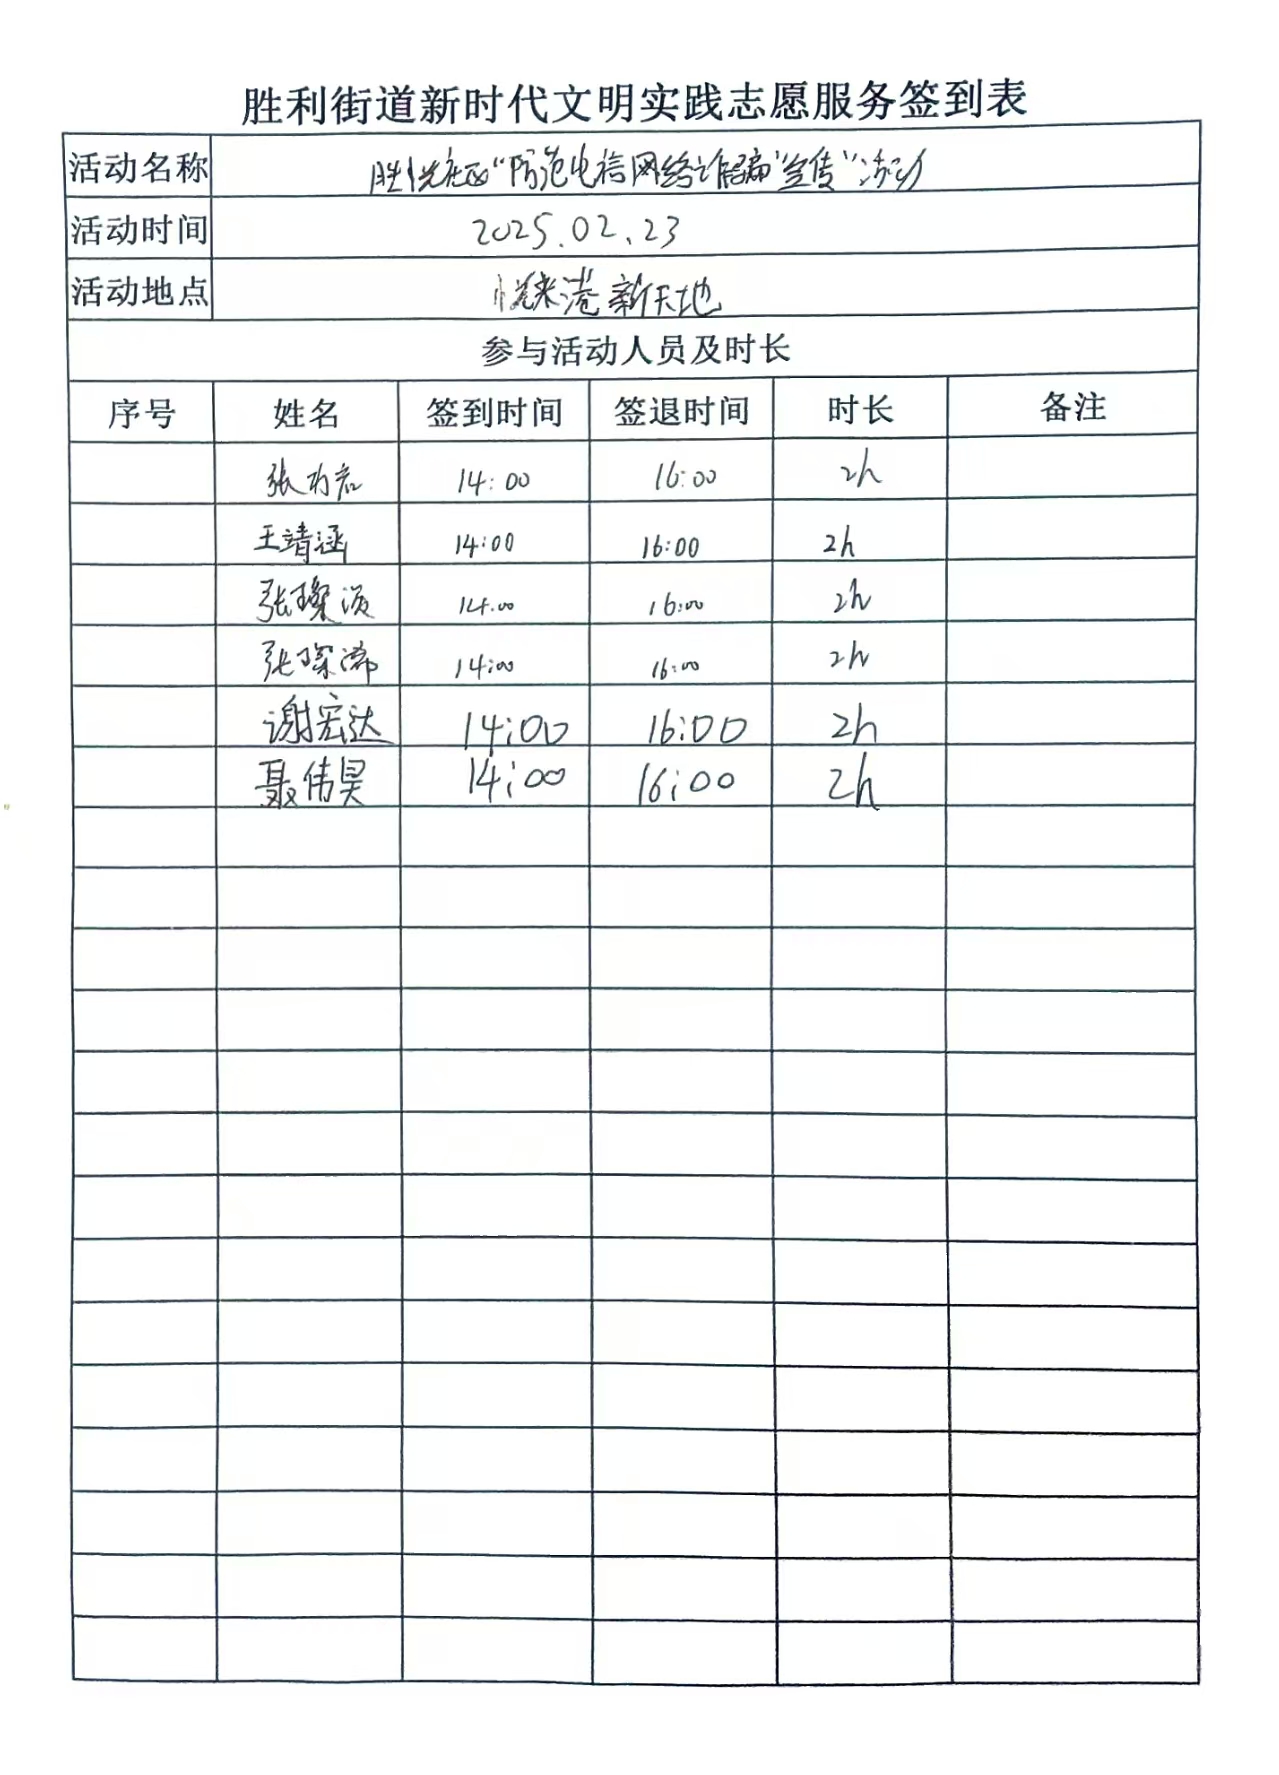 胜利街道新时代文明实践志愿服务签到表
活动名称 胜悦社区“防范电信网络诈骗“宣传”活动
活动时间 2025.02.23
活动地点 悦来港新天地
参与活动人员及时长
序号 姓名 签到时间 签退时间 时长 备注
张 14:00 16:00 2h
王靖涵 14:00 16:00 2h
张璨 14:00 16:00 2h
张琛 14:00 16:00 2h
谢宏达 14:00 16:00 2h
聂伟昊 14:00 16:00 2h